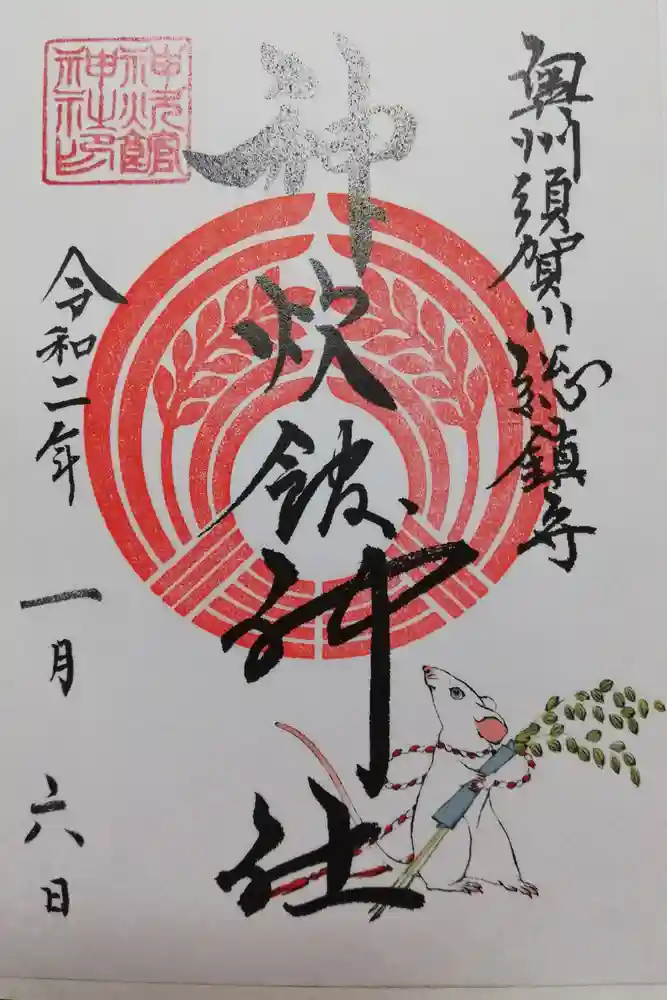 奥州須賀川総鎮守
神炊館神社
神炊館神社印
令和二年
一月六日